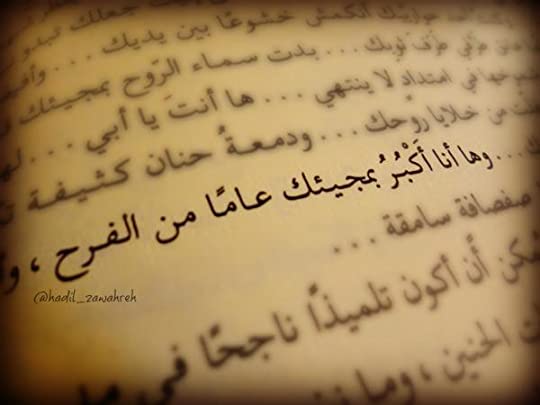 خشوعًا بين يديك ... جعلك تبدو
بدت سماء الرّوح بمجيئك
في امتدادٍ لا ينتهي ... ها أنتَ يا أبي ...
من خلايا روحك ... ودمعةُ حنان كثيفة
... وها أنا أَكْبُرُ بمجيئك عامًا من الفرح ،
صفصافة سامقة ...
أن أكون تلميذًا ناجحًا في
الحنين ، وما
@hadil_zawahreh